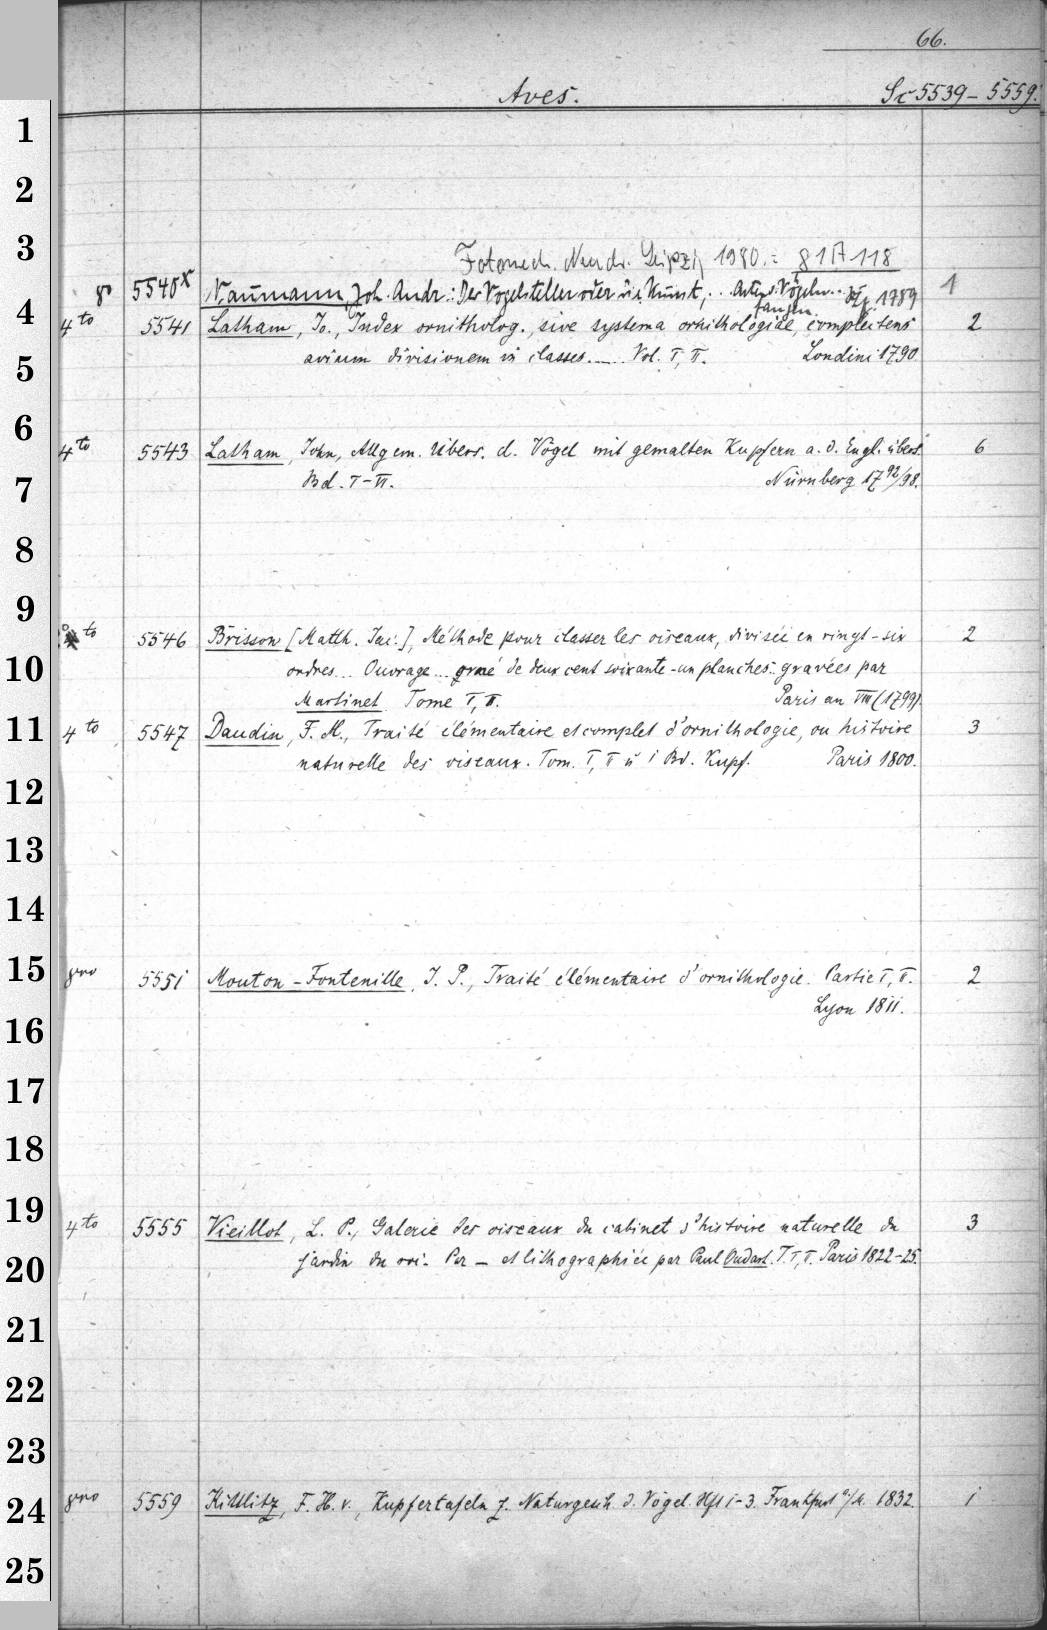 66.
Aves. Sc 5539 - 5559.
1
2
3
Fotomech. Neudr. Leipzig 1980.= 81 A 118
8o 5540x Naumann, Joh. Andr.: Der Vogelsteller oder die Kunst, .. Arten v. Vögeln .. Lpz. 1789 1
fangen.
4
4to 5541 Latham, Jo., Index ornitholog., sive systema ornithologiae, complectens 2
avium divisionem in classes. ... Vol. I, II. Londini 1790
5
6
4to 5543 Latham, John, Allgem. Übers. d. Vögel mit gemalten Kupfern a. d. Engl. übers. 6
7
Bd. I-VI. Nürnberg 1792/98.
8
9
5546 Brisson [Matth. Jac.], Méthode pour classer les oiseaux, divisée en vingt-six 2
10
ordres... Ouvrage ... orné de deux cent soixante-un planches.. gravées par
Martinet Tome I, II. Paris an VIII (1799).
11
4to 5547 Daudin, F. M., Traité élémentaire et complet d'ornithologie, ou histoire 3
naturelle des oiseaux. Tom. I, II u 1 Bd. Kupf. Paris 1800.
12
13
14
15
8vo 5551 Mouton-Fontenille, J. P., Traité élémentaire d'ornithologie. Partie I, II. 2
Lyon 1811.
16
17
18
19
4to 5555 Vieillot, L. P., Galerie des oiseaux du cabinet d'histoire naturelle du 3
20
jardin du roi. Per — et lithographiée par Paul Oudart. T. I, II. Paris 1822-25.
21
22
23
24
8vo 5559 Kittlitz, F. H. v., Kupfertafeln z. Naturgesch. d. Vögel. Hft 1-3. Frankfurt a/M. 1832. 1
25